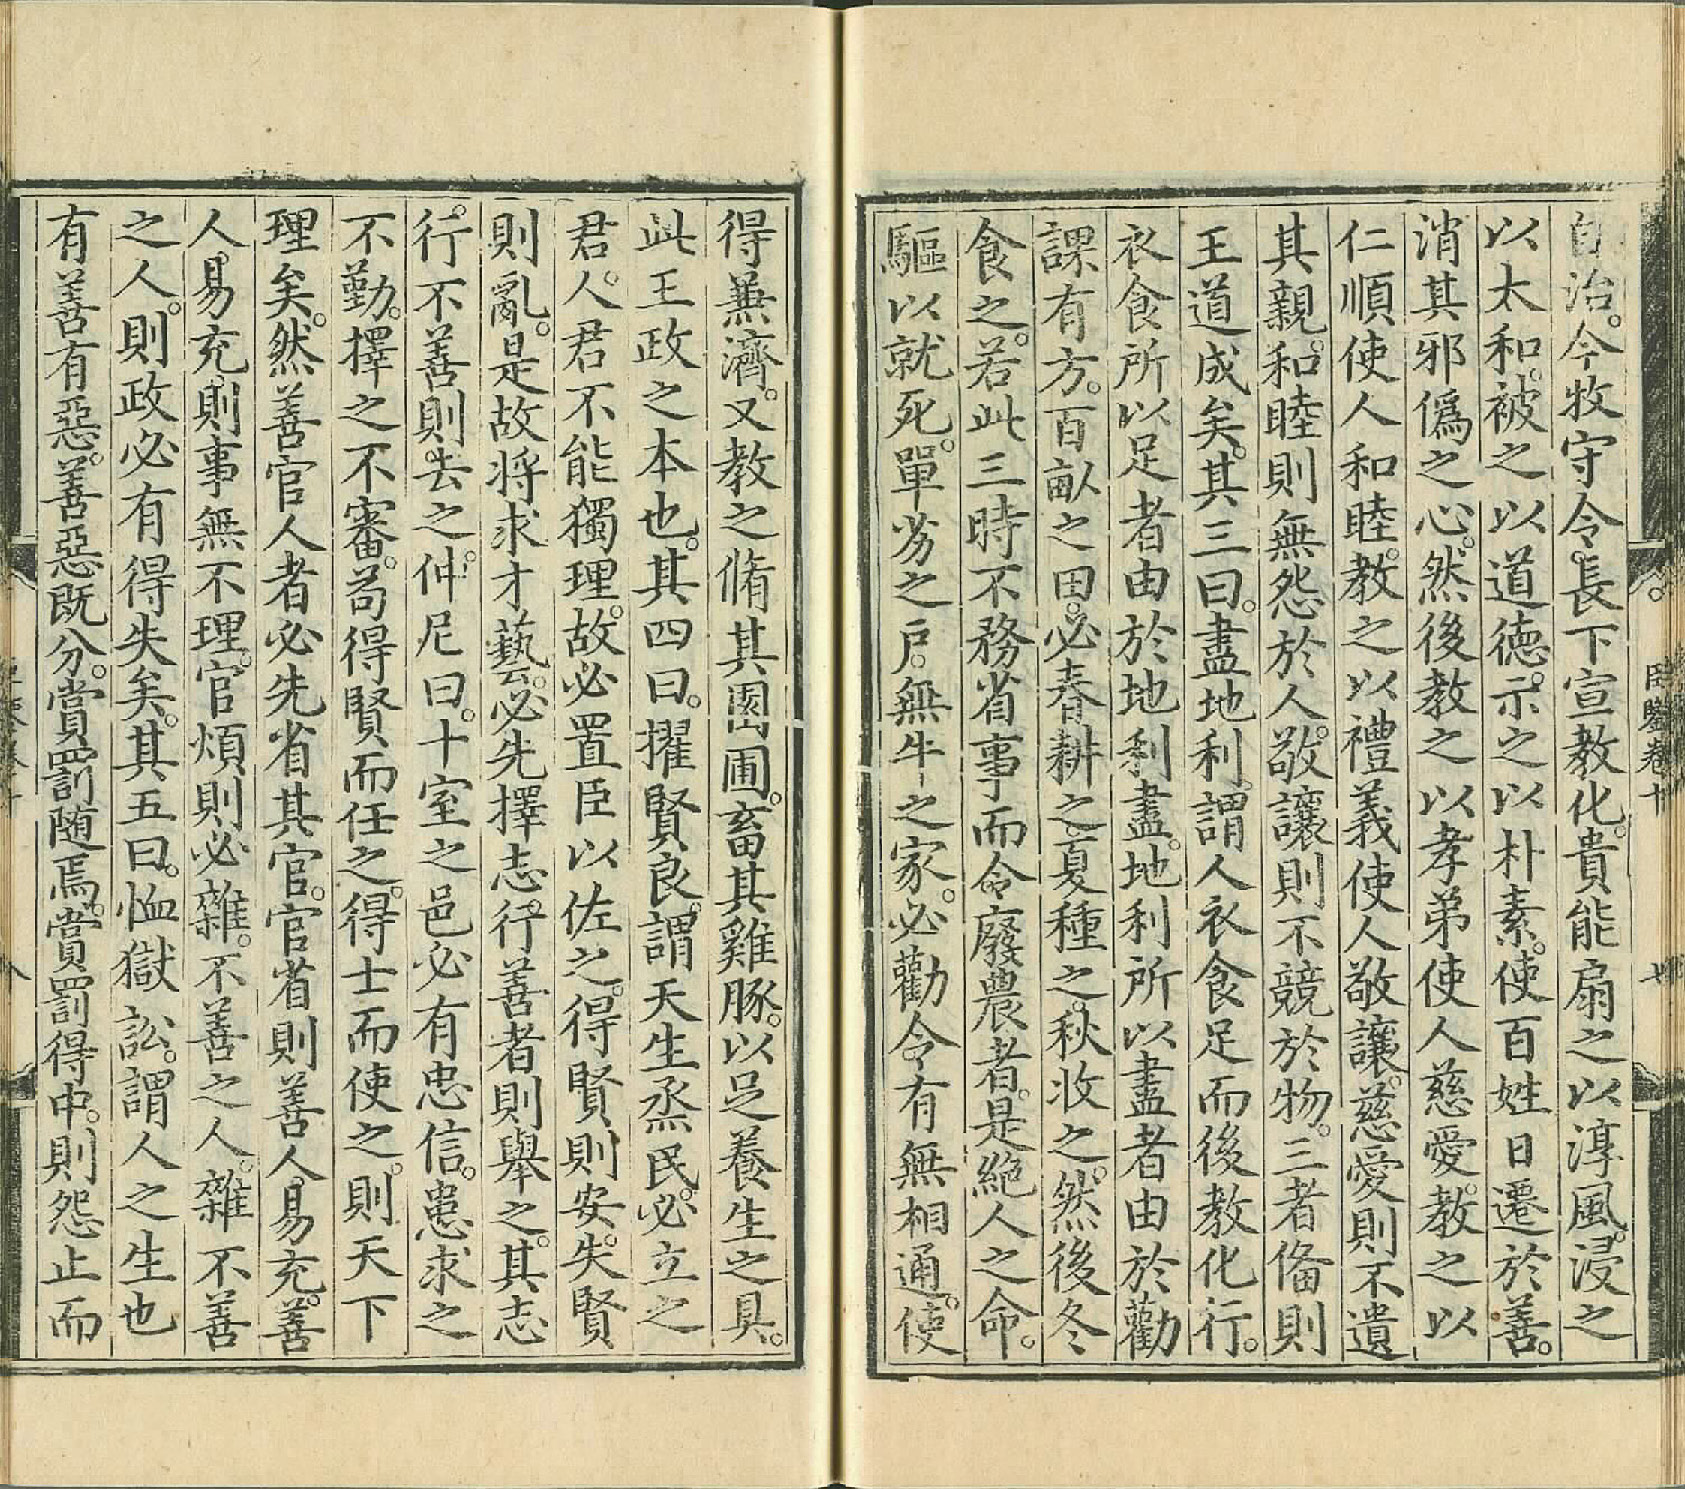 自治。今牧守令。長下宣教化。貴能扇之以淳風。浸之
以太和。被之以道德。示之以朴素。使百姓日遷於善。
消其邪僞之心。然後教之以孝弟使人慈愛。教之以
仁順使人和睦。教之以禮義使人敬讓。慈愛則不遺
其親。和睦則無怨於人。敬讓則不競於物。三者備則
王道成矣。其三曰。盡地利。謂人衣食足而後教化行。
衣食所以足者由於地利盡。地利所以盡者由於勸
課有方。百畝之田。必春耕之。夏種之。秋收之。然後冬
食之。若此三時不務省事而令廢農者。是絶人之命。
驅以就死。單劣之戶。無牛之家。必勸令有無相通。使
得兼濟。又教之脩其園圃。畜其雞豚。以足養生之具。
此王政之本也。其四曰。擢賢良。謂天生烝民。必立之
君。人君不能獨理。故必置臣以佐之。得賢則安。失賢
則亂。是故将求才藝。必先擇志。行善者則舉之。其志
行。不善則去之。仲尼曰。十室之邑必有忠信。患求之
不勤。擇之不審。苟得賢而任之。得士而使之。則天下
理矣。然善官人者必先省其官。官省則善人易充。善
人易充。則事無不理。官煩則必雜。不善之人。雜不善
之人。則政必有得失矣。其五曰。恤獄訟。謂人之生也
有善有惡。善惡既分。賞罰随焉。賞罰得中。則怨止而